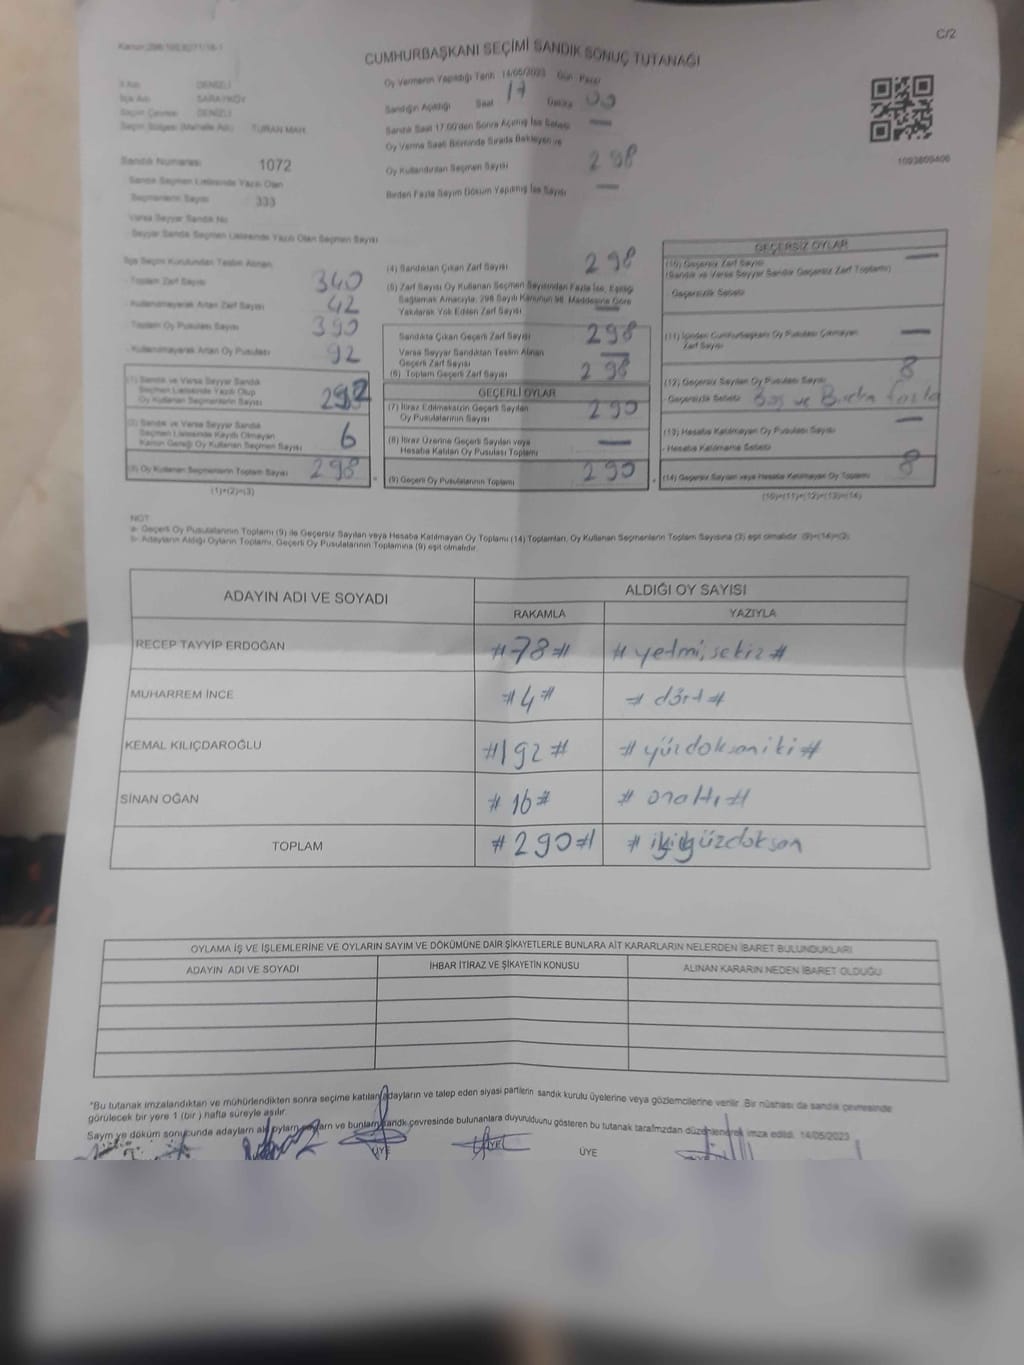 C/2
Kanun:298/100,6271/16-1
CUMHURBAŞKANI SEÇİMİ SANDIK SONUÇ TUTANAĞI
İl Adı DENİZLİ
İlçe Adı SARAYKÖY
Seçim Çevresi DENİZLİ
Seçim Bölgesi (Mahalle Adı) TURAN MAH.
Sandık Numarası 1072
Sandık Seçmen Listesinde Yazılı Olan
Seçmenlerin Sayısı 333
Varsa Seyyar Sandık No
Seyyar Sandık Seçmen Listesinde Yazılı Olan Seçmen Sayısı
Oy Vermenin Yapıldığı Tarih 14/05/2023 Gün Pazar
Sandığın Açıldığı Saat 17 Dakika 00
Sandık Saat 17:00'den Sonra Açılmış İse Sebebi —
Oy Verme Saati Bitiminde Sırada Bekleyen ve
Oy Kullandırılan Seçmen Sayısı 298
Birden Fazla Sayım Döküm Yapılmış İse Sayısı —
1093809406
İlçe Seçim Kurulundan Teslim Alınan
- Toplam Zarf Sayısı 340
- Kullanılmayarak Artan Zarf Sayısı 42
- Toplam Oy Pusulası Sayısı 390
- Kullanılmayarak Artan Oy Pusulası 92
(1) Sandık ve Varsa Seyyar Sandık
Seçmen Listesinde Yazılı Olup
Oy Kullanan Seçmenlerin Sayısı 292
(2) Sandık ve Varsa Seyyar Sandık
Seçmen Listesinde Kayıtlı Olmayan
Kanun Gereği Oy Kullanan Seçmen Sayısı 6
(3) Oy Kullanan Seçmenlerin Toplam Sayısı 298
(1)+(2)=(3)
(4) Sandıktan Çıkan Zarf Sayısı 298
(5) Zarf Sayısı Oy Kullanan Seçmen Sayısından Fazla İse, Eşitliği
Sağlamak Amacıyla, 298 Sayılı Kanunun 98. Maddesine Göre
Yakılarak Yok Edilen Zarf Sayısı —
Sandıkta Çıkan Geçerli Zarf Sayısı 298
Varsa Seyyar Sandıktan Teslim Alınan
Geçerli Zarf Sayısı —
(6) Toplam Geçerli Zarf Sayısı 298
GEÇERLİ OYLAR
(7) İtiraz Edilmeksizin Geçerli Sayılan
Oy Pusulalarının Sayısı 290
(8) İtiraz Üzerine Geçerli Sayılan veya
Hesaba Katılan Oy Pusulası Toplamı —
(9) Geçerli Oy Pusulalarının Toplamı 290
GEÇERSİZ OYLAR
(10) Geçersiz Zarf Sayısı —
(Sandık ve Varsa Seyyar Sandık Geçersiz Zarf Toplamı)
- Geçersizlik Sebebi
(11) İçinden Cumhurbaşkanı Oy Pusulası Çıkmayan
Zarf Sayısı —
(12) Geçersiz Sayılan Oy Pusulası Sayısı 8
- Geçersizlik Sebebi Boş ve Birden fazla
(13) Hesaba Katılmayan Oy Pusulası Sayısı —
- Hesaba Katılmama Sebebi
(14) Geçersiz Sayılan veya Hesaba Katılmayan Oy Toplamı 8
(10)+(11)+(12)+(13)=(14)
NOT
a- Geçerli Oy Pusulalarının Toplamı (9) ile Geçersiz Sayılan veya Hesaba Katılmayan Oy Toplamı (14) Toplamları, Oy Kullanan Seçmenlerin Toplam Sayısına (3) eşit olmalıdır. (9)+(14)=(3)
b- Adayların Aldığı Oyların Toplamı, Geçerli Oy Pusulalarının Toplamına (9) eşit olmalıdır.
ADAYIN ADI VE SOYADI ALDIĞI OY SAYISI
RAKAMLA YAZIYLA
RECEP TAYYİP ERDOĞAN #78# #yetmişsekiz#
MUHARREM İNCE #4# #dört#
KEMAL KILIÇDAROĞLU #192# #yüzdoksaniki#
SİNAN OĞAN #16# #onaltı#
TOPLAM #290# #ikiyüzdoksan
OYLAMA İŞ VE İŞLEMLERİNE VE OYLARIN SAYIM VE DÖKÜMÜNE DAİR ŞİKAYETLERLE BUNLARA AİT KARARLARIN NELERDEN İBARET BULUNDUKLARI
ADAYIN ADI VE SOYADI İHBAR İTİRAZ VE ŞİKAYETİN KONUSU ALINAN KARARIN NEDEN İBARET OLDUĞU
"Bu tutanak imzalandıktan ve mühürlendikten sonra seçime katılan adayların ve talep eden siyasi partilerin sandık kurulu üyelerine veya gözlemcilerine verilir. Bir nüshası da sandık çevresinde
görülecek bir yere 1 (bir) hafta süreyle asılır.
Sayım ve döküm sonucunda adayların ve bunların sandık çevresinde bulunanlara duyurulduunu gösteren bu tutanak tarafımzdan düzenlenerek imza edildi. 14/05/2023
ÜYE ÜYE ÜYE